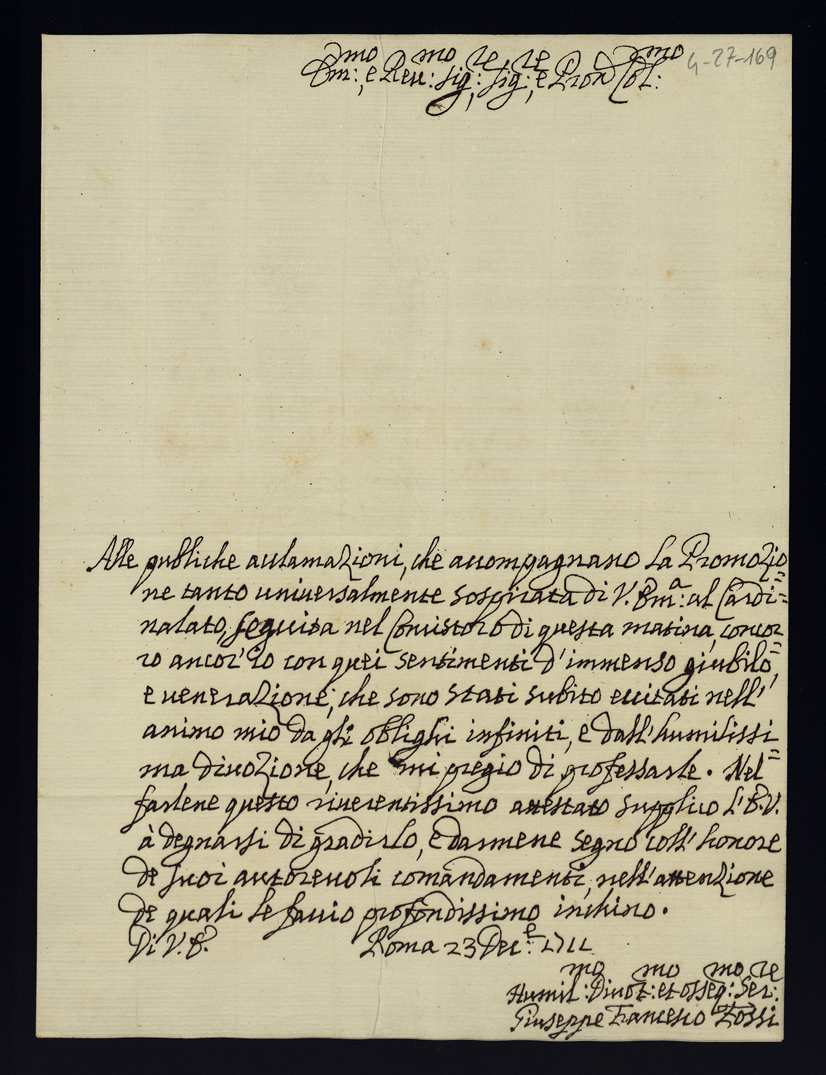 Em:mo, e Reu:mo Sig:re, Sig:re, e Pron Col:mo
4-27-169
Alle publiche acclamazioni, che accompagnano la Promozio=
ne tanto universalmente sospirata di V. Em:a al Cardi=
nalato, seguita nel Concistoro di questa matina, concor=
ro ancor'io con quei sentimenti d'immenso giubilo,
e venerazione, che sono stati subito eccitati nell'
animo mio dagli oblighi infiniti, e dall'humilissi=
ma divozione, che mi pregio di professarle. Nel
farlene questo riverentissimo attestato supplico l'E.V.
à degnarsi di gradirlo, e darmene segno coll'honore
de suoi autorevoli comandamenti, nell'attenzione
de quali le faccio profondissimo inchino.
Di V.E. Roma 23 Dec:e 1711
Humil:mo Divot:mo et osseq:mo Ser:re
Giuseppe Francesco